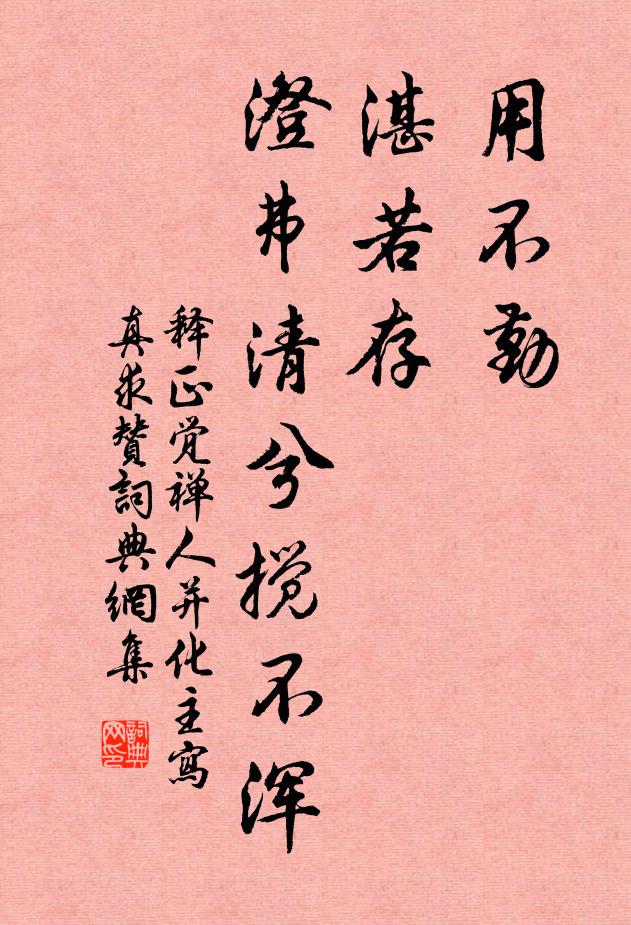 用不勤
湛若存
澄弗清兮搅不浑
释正觉禅人并化主寫
真求赞詞典網集
詞典
网印